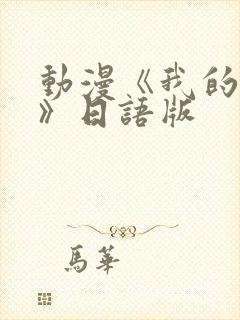 動漫《我的
》日語版
馬華